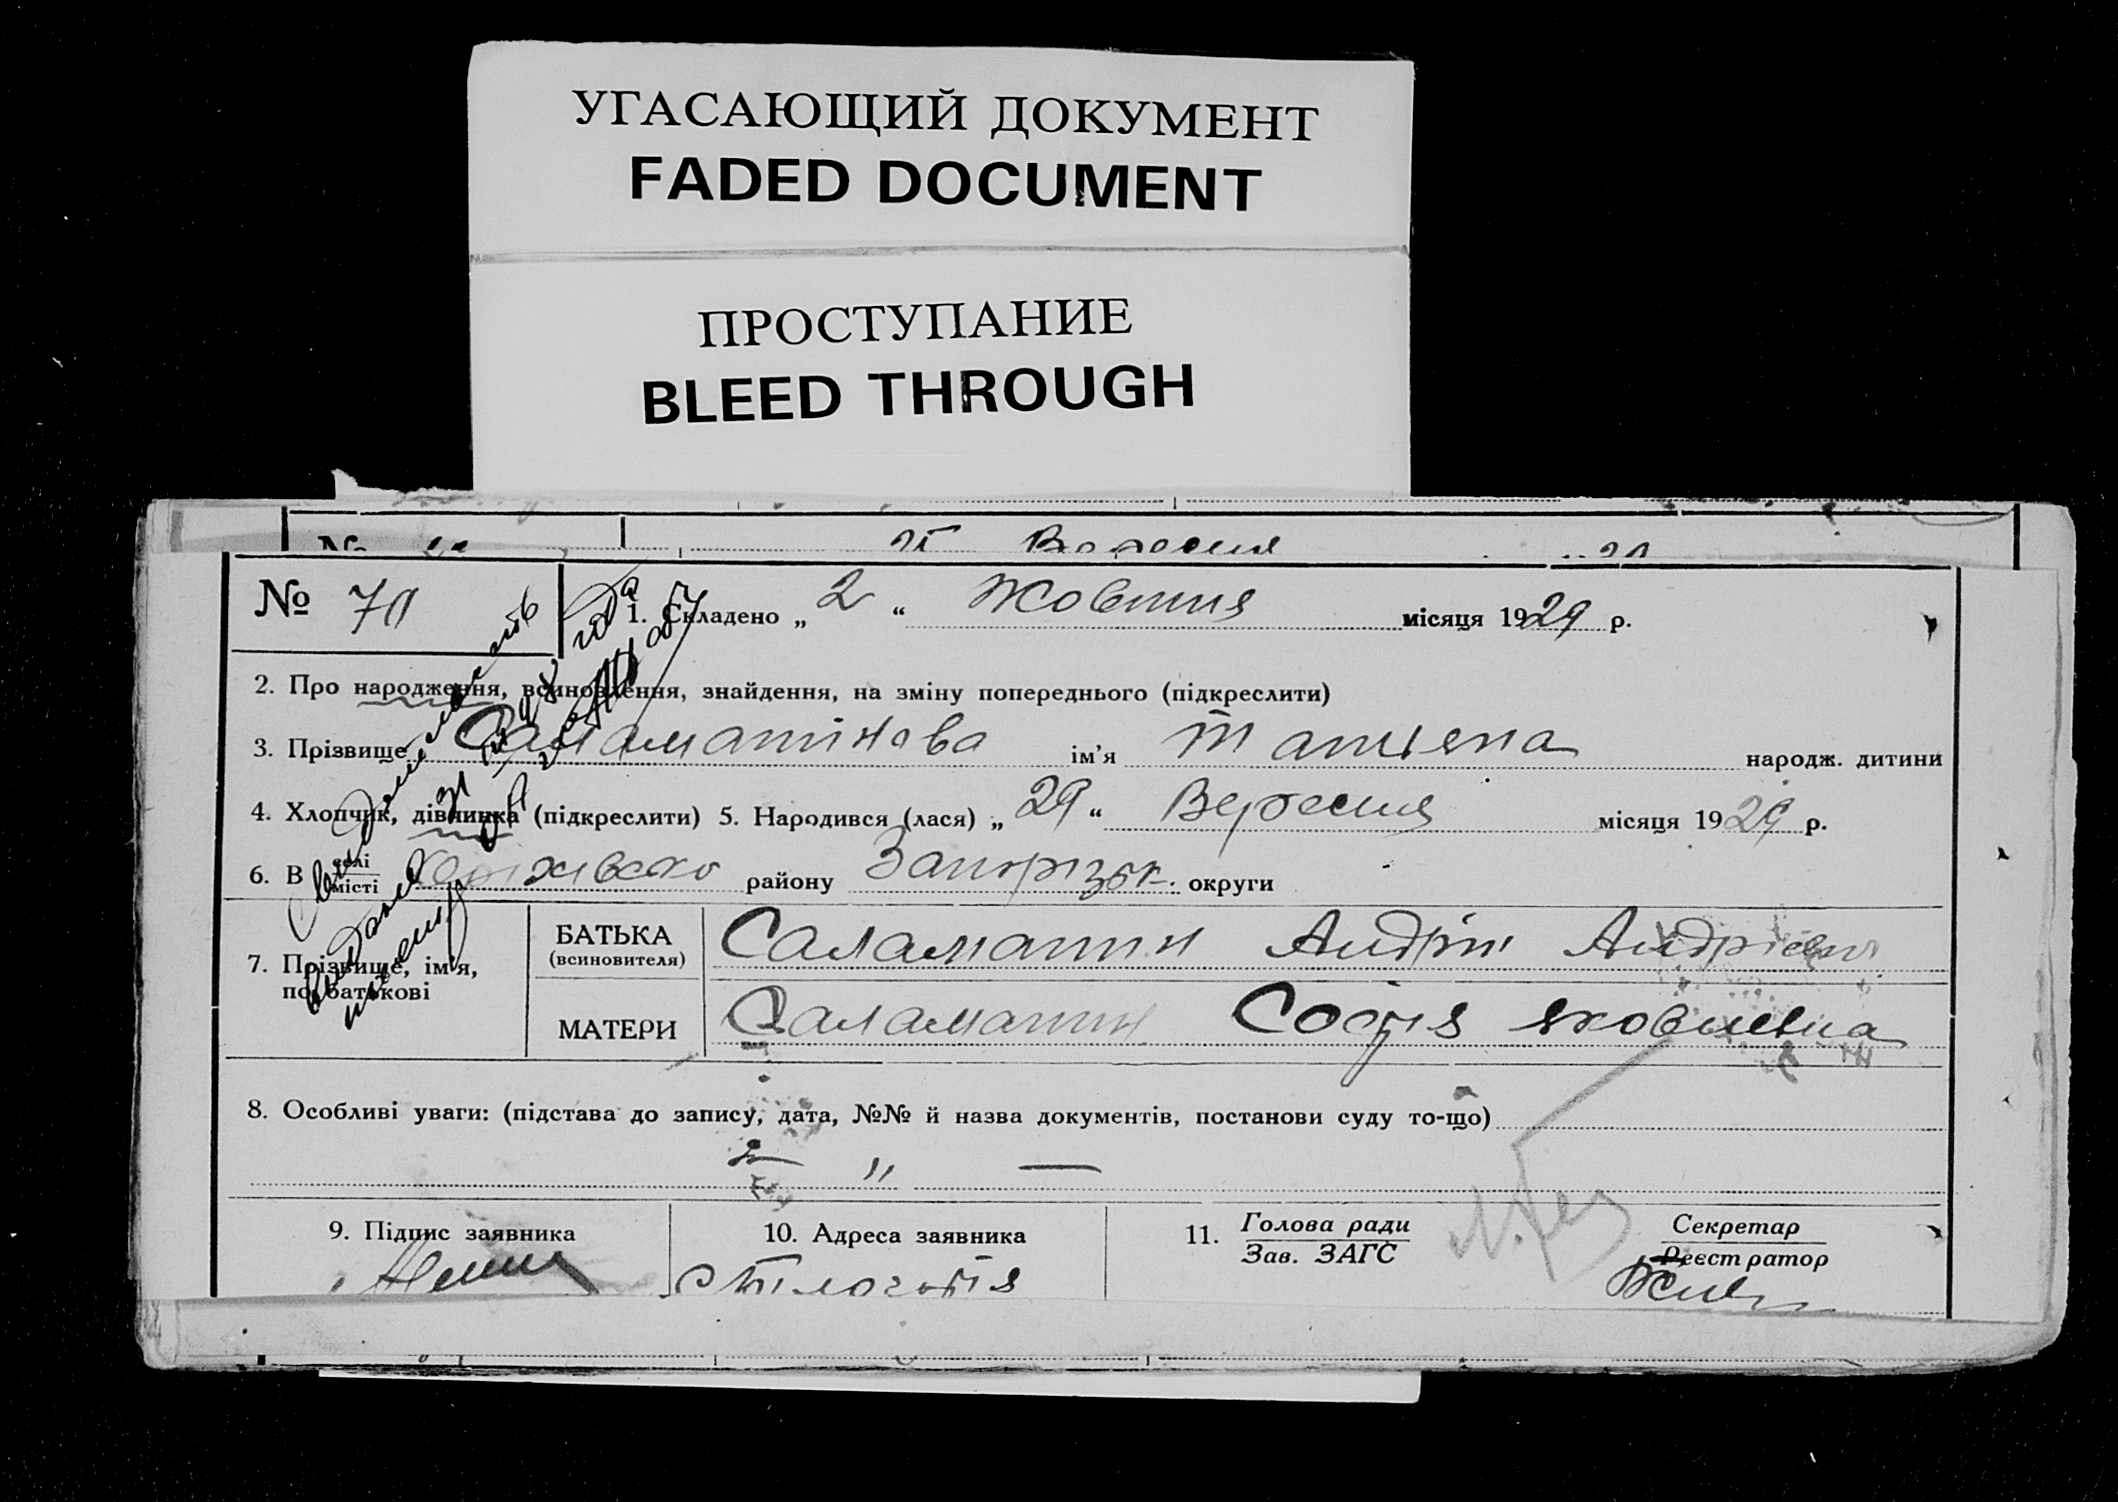 УГАСАЮЩИЙ ДОКУМЕНТ
FADED DOCUMENT
ПРОСТУПАНИЕ
BLEED THROUGH
№ Вересня
№ 70
1. Складено „ 2 “ Жовтня місяця 1929 р.
2. Про народження, всиновлення, знайдення, на зміну попереднього (підкреслити)
3. Прізвище Саламатінова ім’я Татьяна народж. дитини
4. Хлопчик, дівчинка (підкреслити) 5. Народився (лася) „ 29 “ Вересня місяця 1929 р.
6. В селі місті району Запорізьк. округи
7. Прізвище, ім’я, по батькові
БАТЬКА (всиновителя) Саламатин Андрій Андрієвич
МАТЕРИ Саламатин Софія Яковлевна
8. Особливі уваги: (підстава до запису, дата, №№ й назва документів, постанови суду то-що)
9. Підпис заявника
10. Адреса заявника
11. Голова ради
Зав. ЗАГС
Секретар
Реєстратор